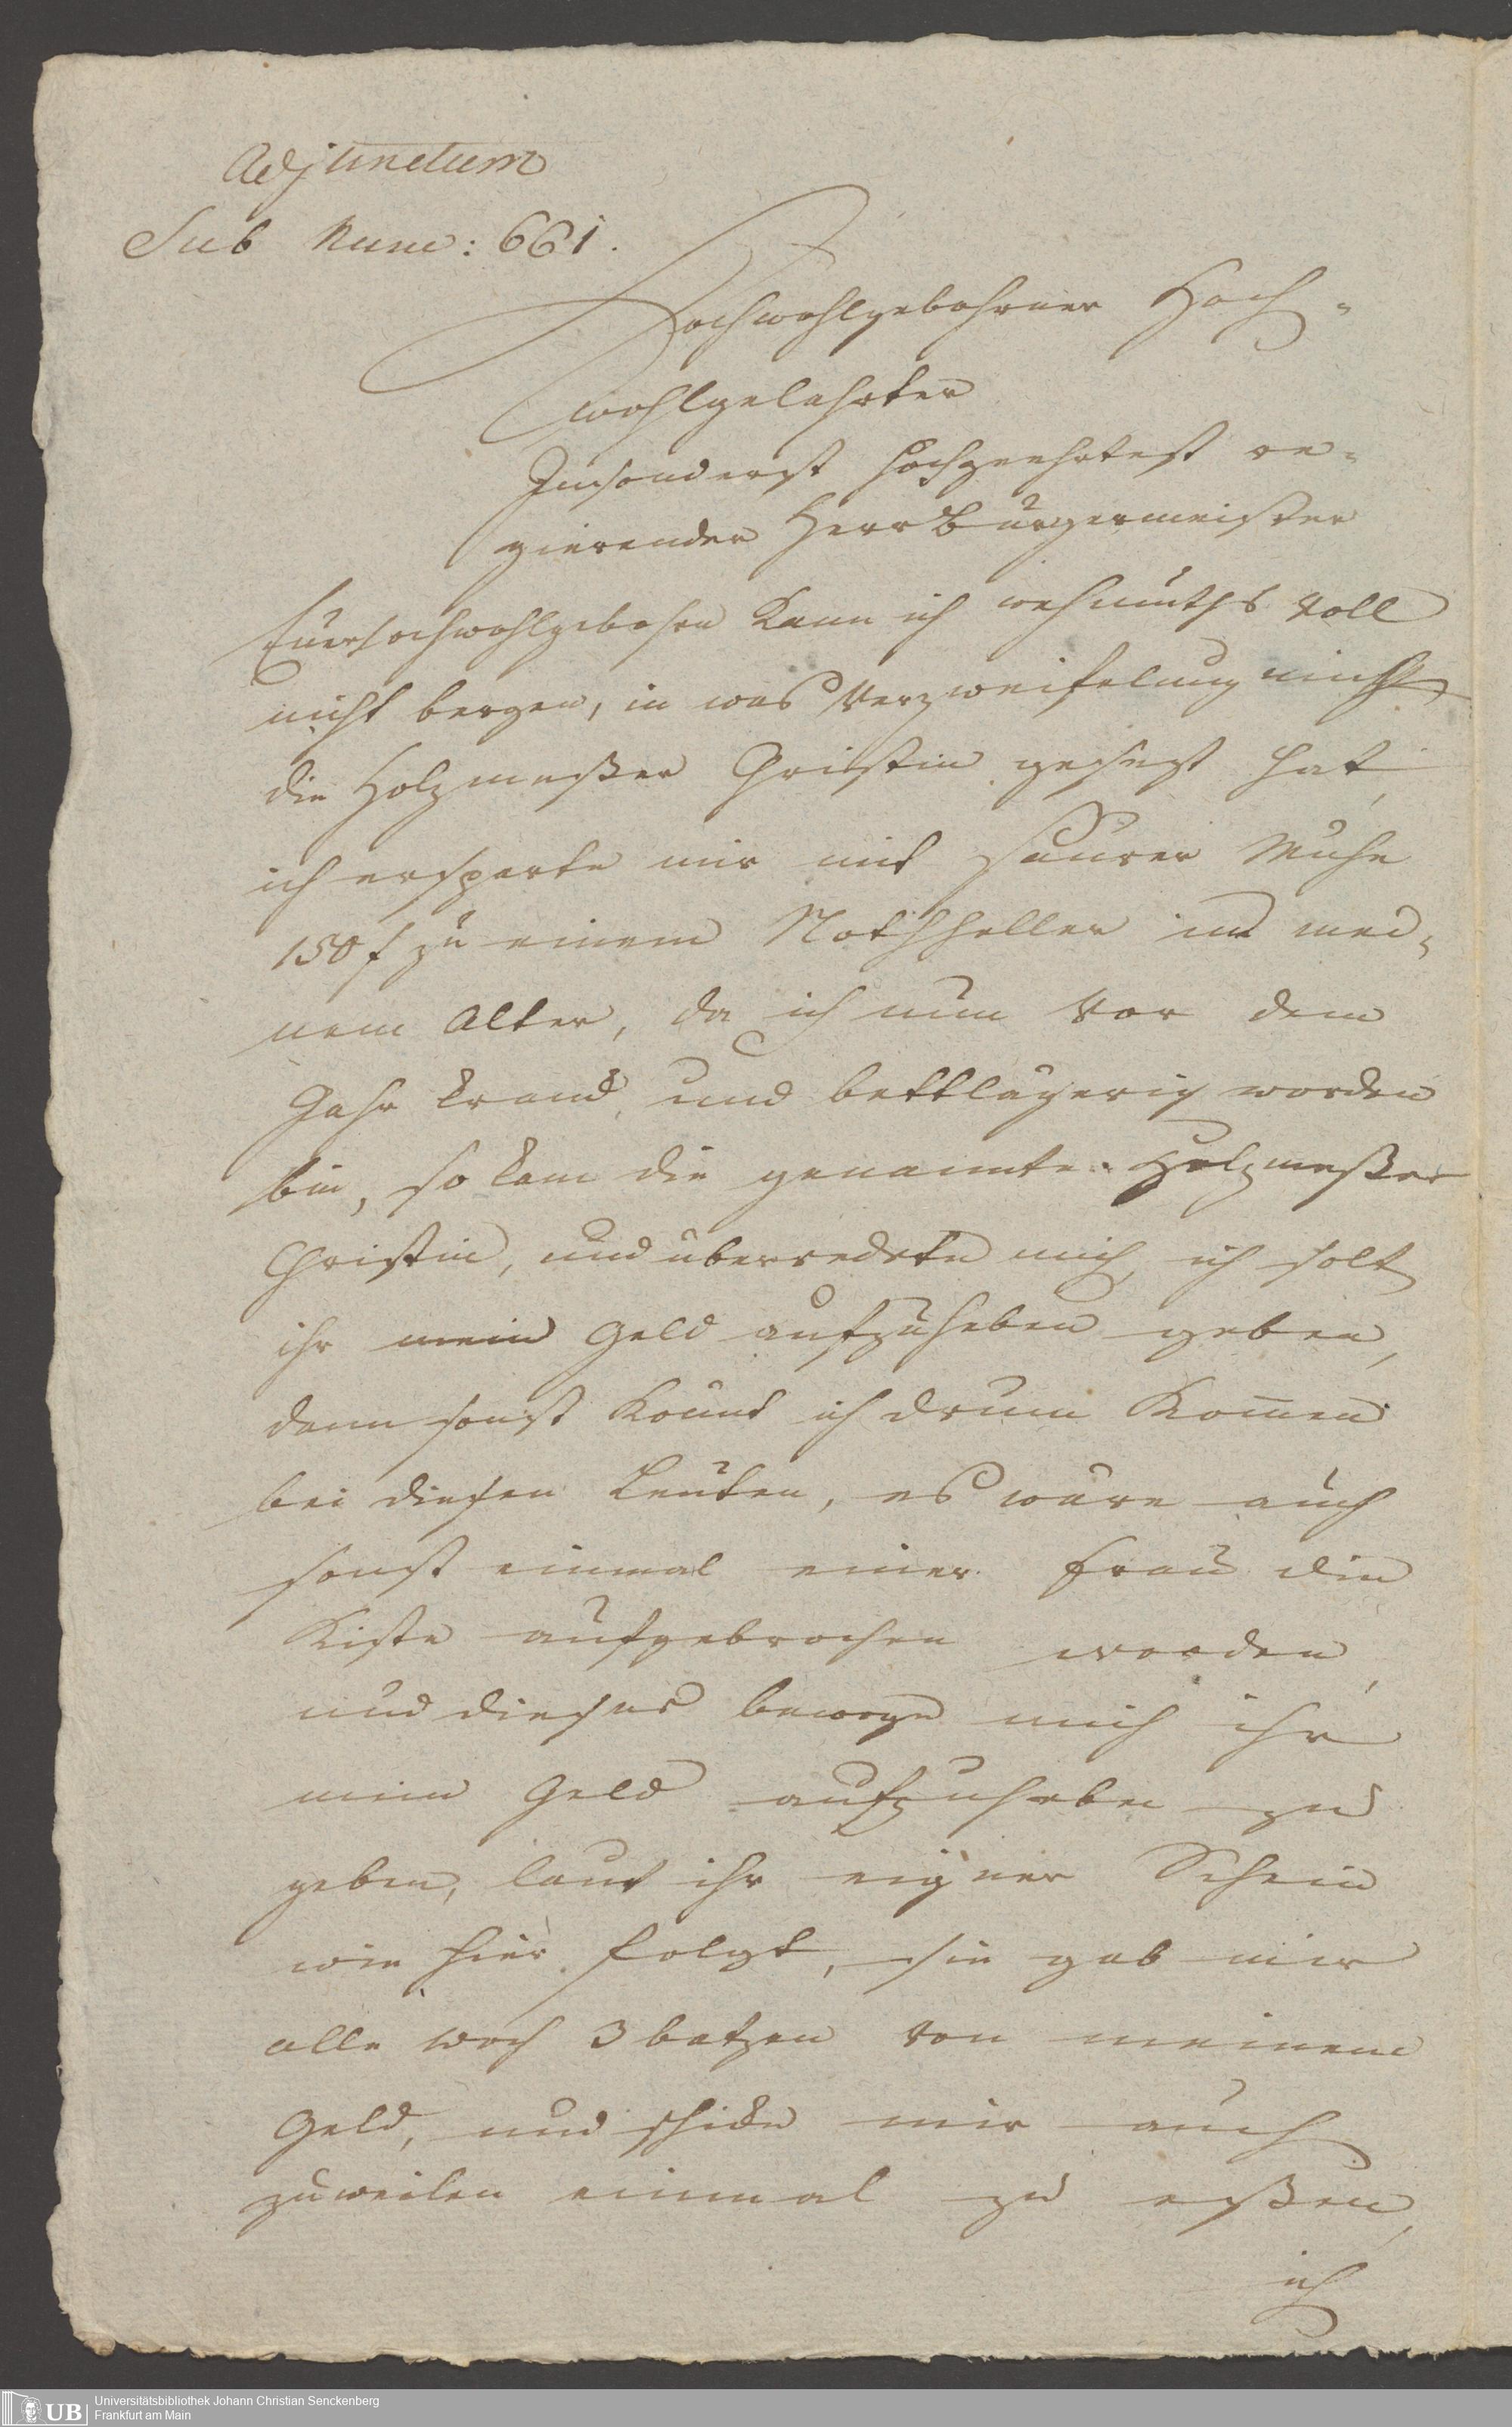 Adjunctum
Sub Num: 661.
Hochwohlgebohrner Hoch-
wohlgelahrter
Insonderst hochgeehrtest re-
gierender Herr Burgermeister
Euerhochwohlgebohrn kann ich wehmuths voll
nicht bergen, in was Verzweifelung mich
die Holzmeßer Christin gesezt hat,
ich ersparte mir mit saurer Mühe
150 f zu einem Nothheller in mei-
nem Alter, da ich nun vor dem
Jahr krank, und bettlägerig worden
bin, so kam die genannte Holzmeßer
Christin, und überredete mich, ich solt
ihr mein Geld aufzuheben geben,
denn sonst kount ich drum kom̅en
bei diesen Leuten, es wäre auch
sonst einmal einer Frau die
Kiste aufgebrochen worden,
und dieses bewoge mich ihr
mein Geld aufzuheben zu
geben, laut ihr eigner Schein
wie hier folgt, sie gab mir
alle woch 3 batzen von meinem
Geld, und schikte mir auch
zuweilen einmal zu eßen,
ich
UB
Universitätsbibliothek Johann Christian Senckenberg
Frankfurt am Main